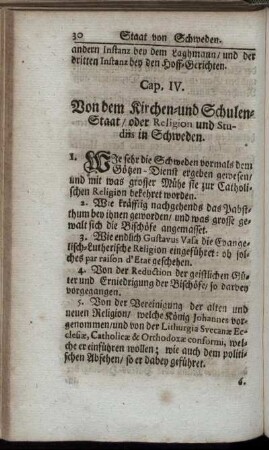 30 Staat von Schweden.
andern Instanz bey dem Laghmann/ und der
dritten Instanz bey den Hoff-Gerichten.
Cap. IV.
Von dem Kirchen-und Schulen-
Staat/ oder Religion und Stu-
diis in Schweden.
1. Wie sehr die Schweden vormals dem
Götzen-Dienst ergeben gewesen/
und mit was grosser Mühe sie zur Catholi-
schen Religion bekehret worden.
2. Wie kräfftig nachgehends das Pabst-
thum bey ihnen geworden/ und was grosse ge-
walt sich die Bischöfe angemasset.
3. Wie endlich Gustavus Vasa die Evange-
lisch-Lutherische Religion eingeführet: ob jol-
ches par raison d'Etat geschehen.
4. Von der Reduction der geistlichen Gü-
ter und Erniedrigung der Bischöfe/ so darbey
vorgegangen.
5. Von der Vereinigung der alten und
neuen Religion/ welche König Johannes vor-
genommen/und von der Lithurgia Svecanæ Ec-
clesiæ, Catholicæ & Orthodoxæ conformi, wel-
che er einführen wollen; wie auch dem politi-
schen Absehen/ so er dabey geführet.
6.